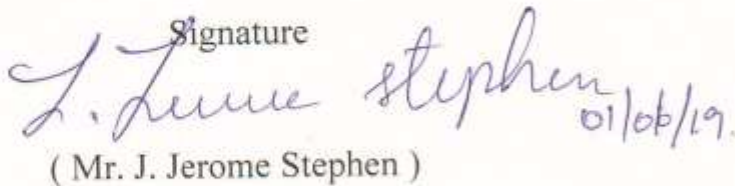 Signature
J. Jerome Stephen
01/06/19.
( Mr. J. Jerome Stephen )